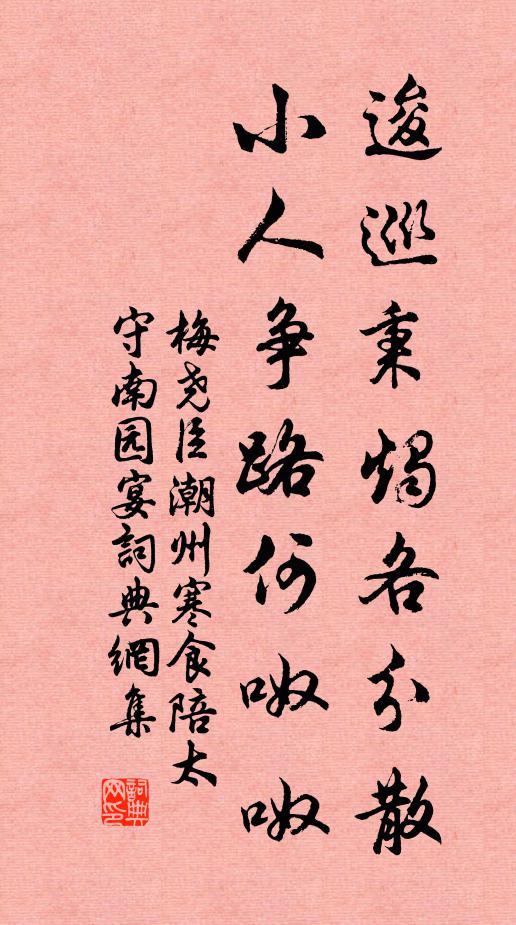 逡巡秉燭各分散
小人争路何呶呶
梅尧臣潮州寒食陪太
守南园宴詞典網集
詞典
网印